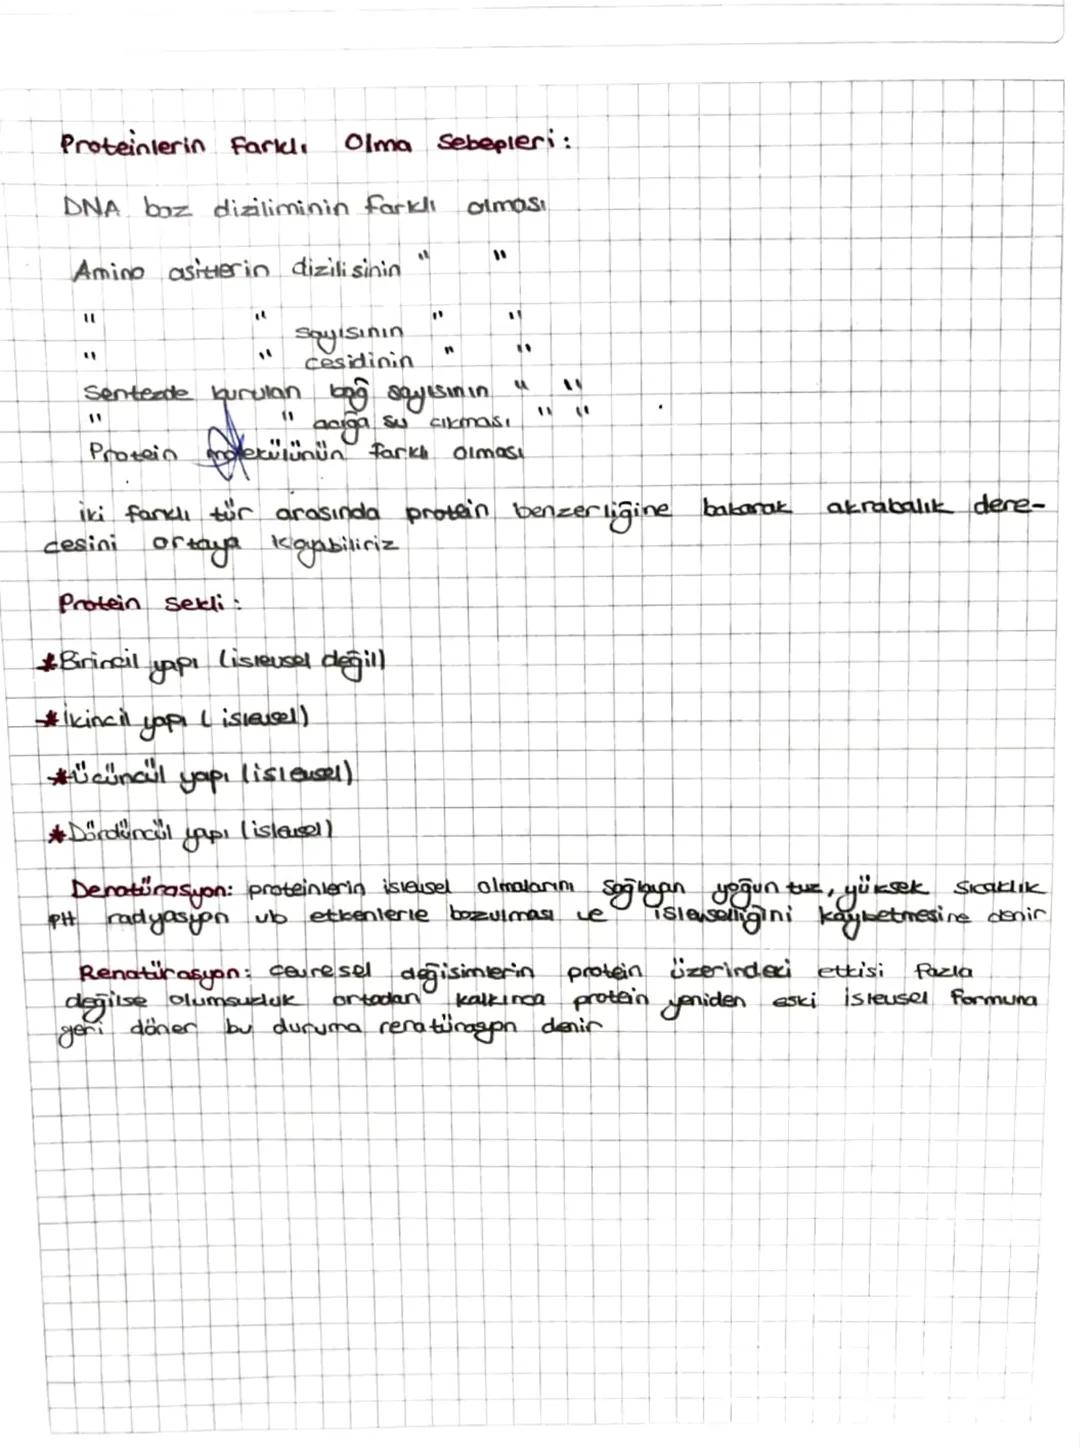 Proteinlerin Farklı Olma Sebepleri:
DNA baz diziliminin farklı olması
Amino asitlerin dizilisinin " "
" " sayısının " "
" " cesidinin " "
Sentezde kurulan bağ sayısının " "
" " açığa su cıkması " "
Protein molekülünün farklı olması
iki farklı tür arasında protein benzerliğine bakarak akrabalık dere-
cesini ortaya koyabiliriz
Protein sekli:
*Birincil yapı (islevsel değil)
*İkincil yapı (islevsel)
*Ücüncül yapı (islevsel)
*Dördüncül yapı (islevsel)
Denatürasyon: proteinlerin islevsel olmalarını sağlayan yoğun tuz, yüksek sıcaklık
PH radyasyon vb etkenlerle bozulması ve islevselliğini kaybetmesine denir
Renatürasyon: cevresel değisimlerin protein üzerindeki etkisi fazla
değilse olumsuzluk ortadan kalkınca protein yeniden eski islevsel formuna
geri döner bu duruma renatürasyon denir